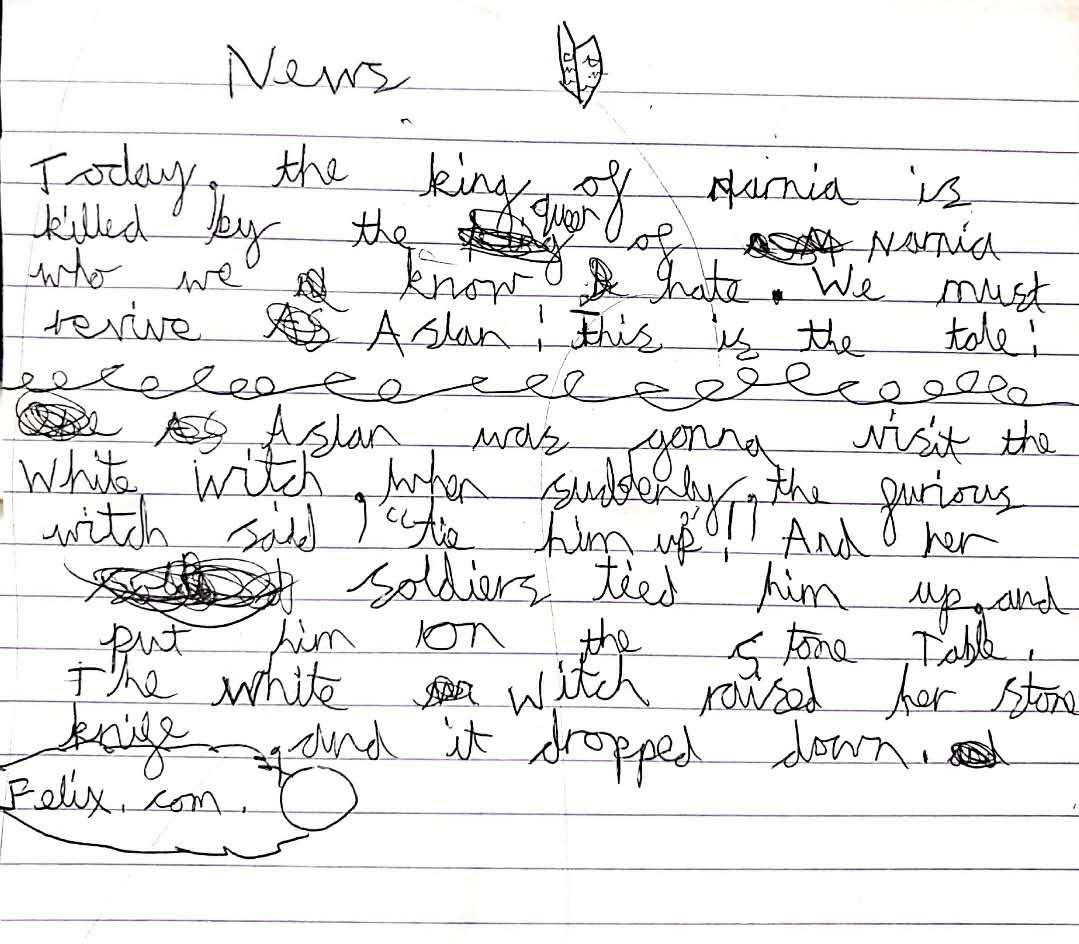 News
Today, the king of Narnia is
killed by the queen of Narnia
who we know & hate. We must
revive Aslan! this is the tale:
Aslan was gonna visit the
White witch, when suddenly, the furious
witch said, "tie him up"!! And her
soldiers tied him up, and
put him on the stone Table.
The white witch raised her stone
knife, and it dropped down.
Felix. com.